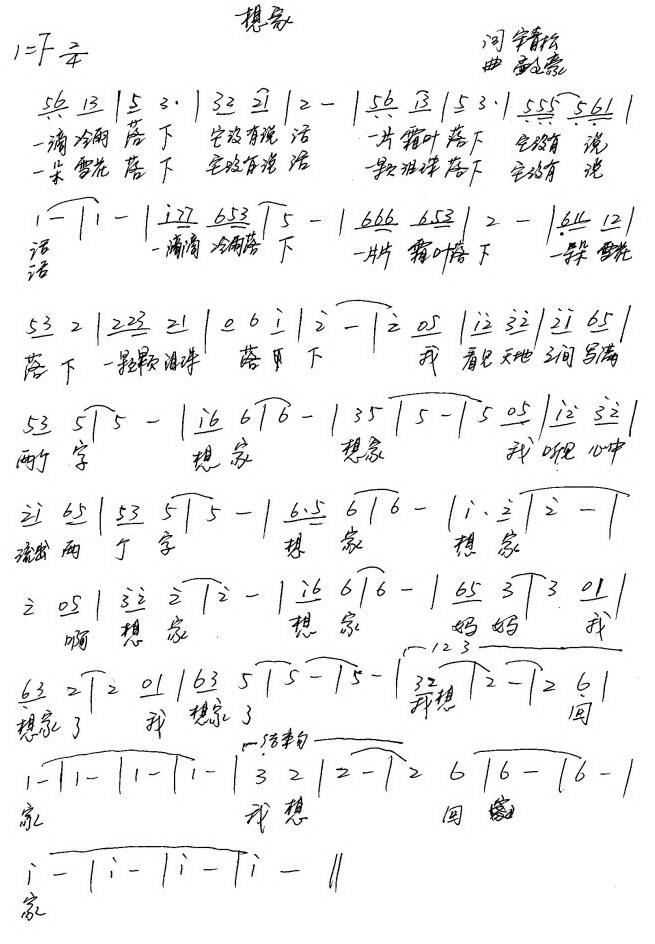 想家
1=F 2/4
词 宇青松
曲
56 13 | 5 3· | 32 21 | 2 - | 56 13 | 5 3· | 555 561 |
一滴 冷雨 落 下 它没有说 话 一片 霜叶 落下 它没有 说
一朵 雪花 落 下 它没有说 话 一颗 泪珠 落下 它没有 说
1 - | 1 - | i77 653 | 5 - | 666 653 | 2 - | 611 12 |
话 一滴滴 冷雨落 下 一片片 霜叶落 下 一朵朵 雪花
话
53 2 | 223 21 | 0 6 i | 2 - | 2 05 | i2 32 | 2i 65 |
落 下 一颗颗 泪珠 落 下 我 看见 天地 之间 写满
53 5 | 5 - | i6 6 | 6 - | 35 | 5 - | 5 05 | i2 32 |
两个 字 想 家 想家 我 听见 心中
2i 65 | 53 5 | 5 - | 6·5 6 | 6 - | i· 2 | 2 - |
流出 两 个 字 想 家 想 家
2 05 | 32 2 | 2 - | i6 6 | 6 - | 65 3 | 3 01 |
啊 想 家 想 家 妈 妈 我
123
63 2 | 2 01 | 63 5 | 5 - | 5 - | 32 | 2 - | 2 6 |
想家 了 我 想家 了 我想 回
结束句
1 - | 1 - | 1 - | 1 - | 3 2 | 2 - | 2 6 | 6 - | 6 - |
家 我 想 回
i - | i - | i - | i - ‖
家